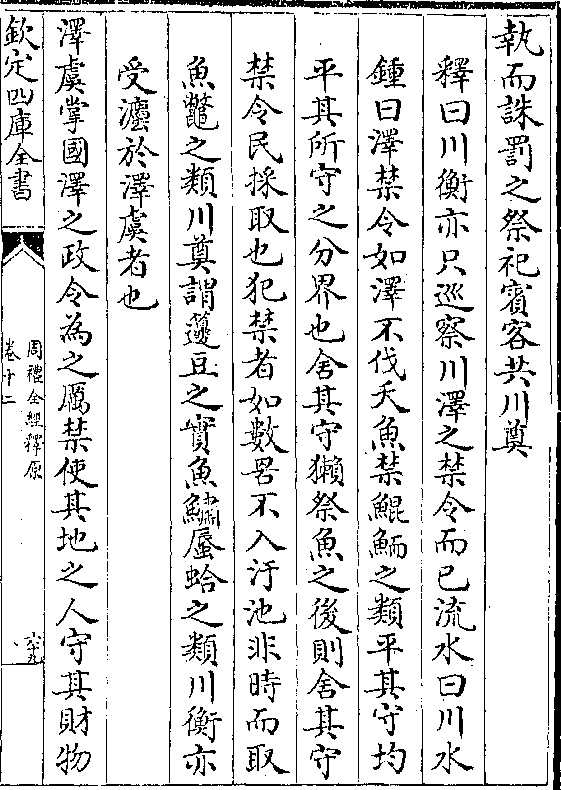 執而誅罰之祭祀賓客共川奠
釋曰川衡亦只巡察川澤之禁令而已流水曰川水
鍾曰澤禁令如澤不伐夭魚禁鯤鮞之類平其守均
平其所守之分界也舍其守獺祭魚之後則舍其守
禁令民採取也犯禁者如數罟不入汙池非時而取
魚鼈之類川奠謂籩豆之實魚鱐蜃蛤之類川衡亦
受灋於澤虞者也
澤虞掌國澤之政令為之厲禁使其地之人守其財物
欽定四庫全書
周禮全經釋原
卷十二
六十九